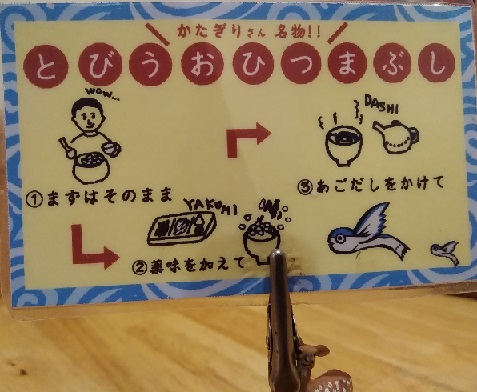 かたぎりさん 名物!!
とびうおひつまぶし
WOW...
①まずはそのまま
YAKUMI
②薬味を加えて
DASHI
③あごだしをかけて